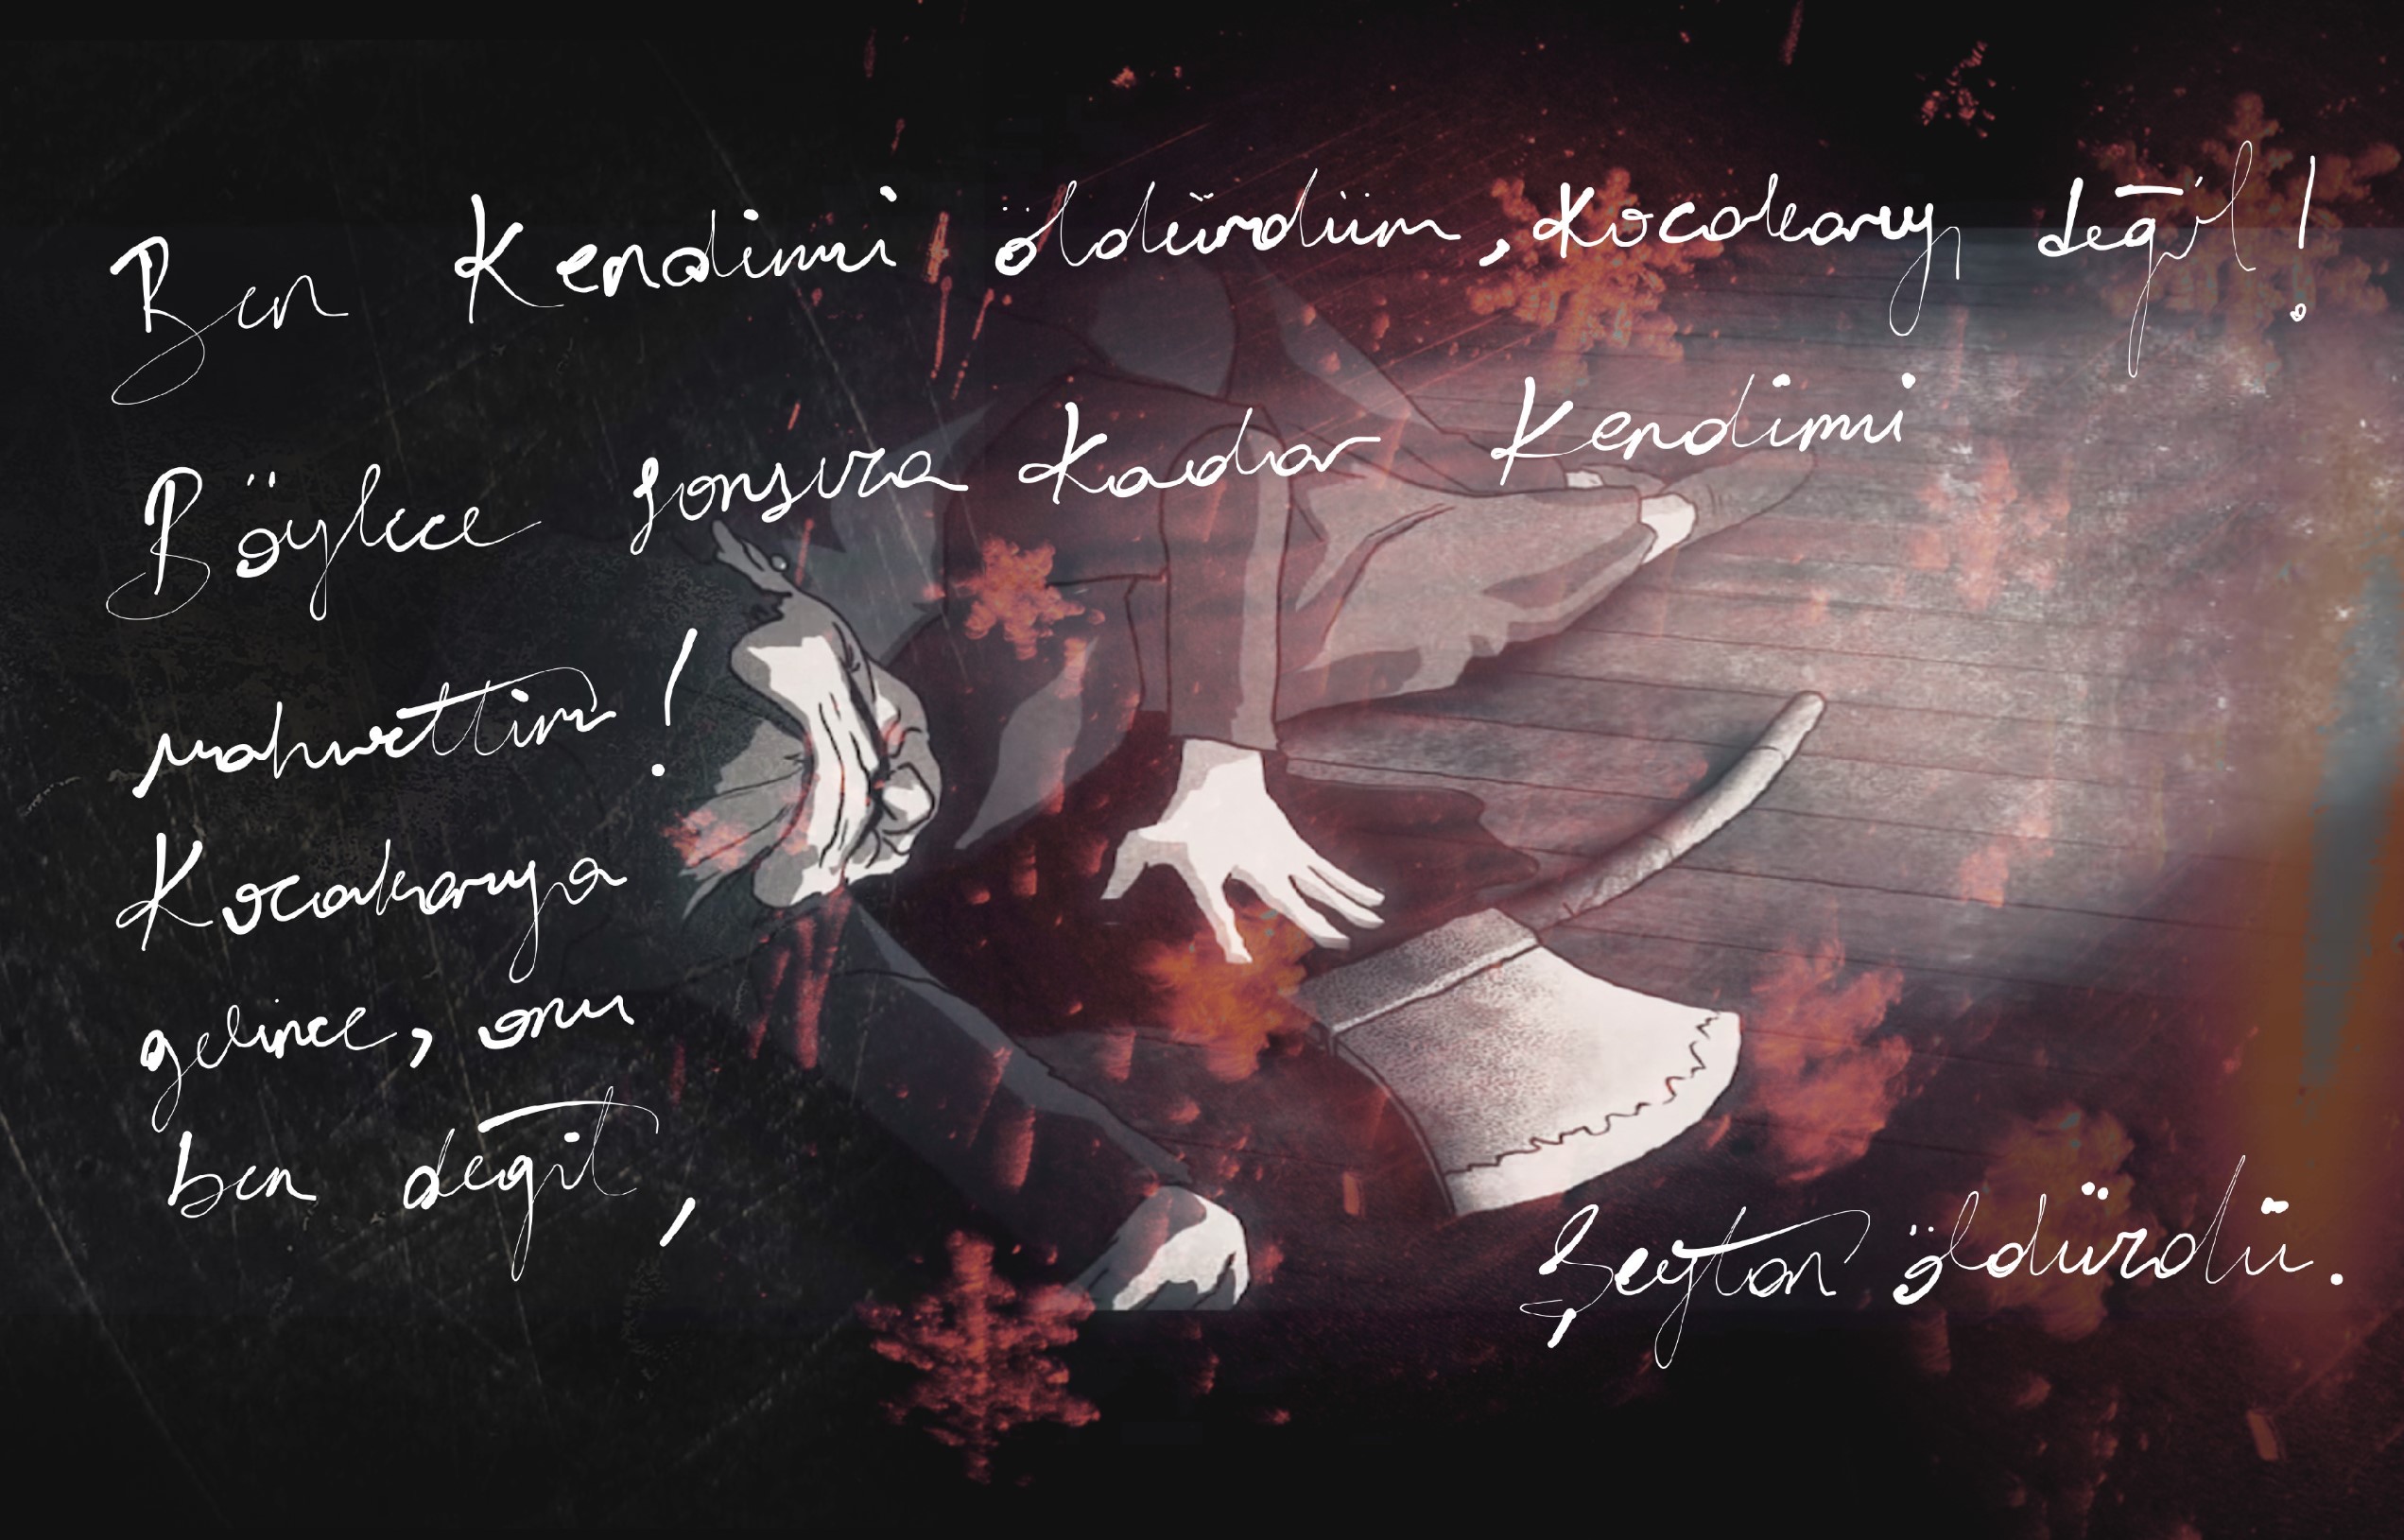 Ben Kendimi öldürdüm, Kocakarıyı değil!
Böylece sonsuza Kadar Kendimi
mahvettim!
Kocakarıya
gelince, onu
ben değil,
Şeytan öldürdü.